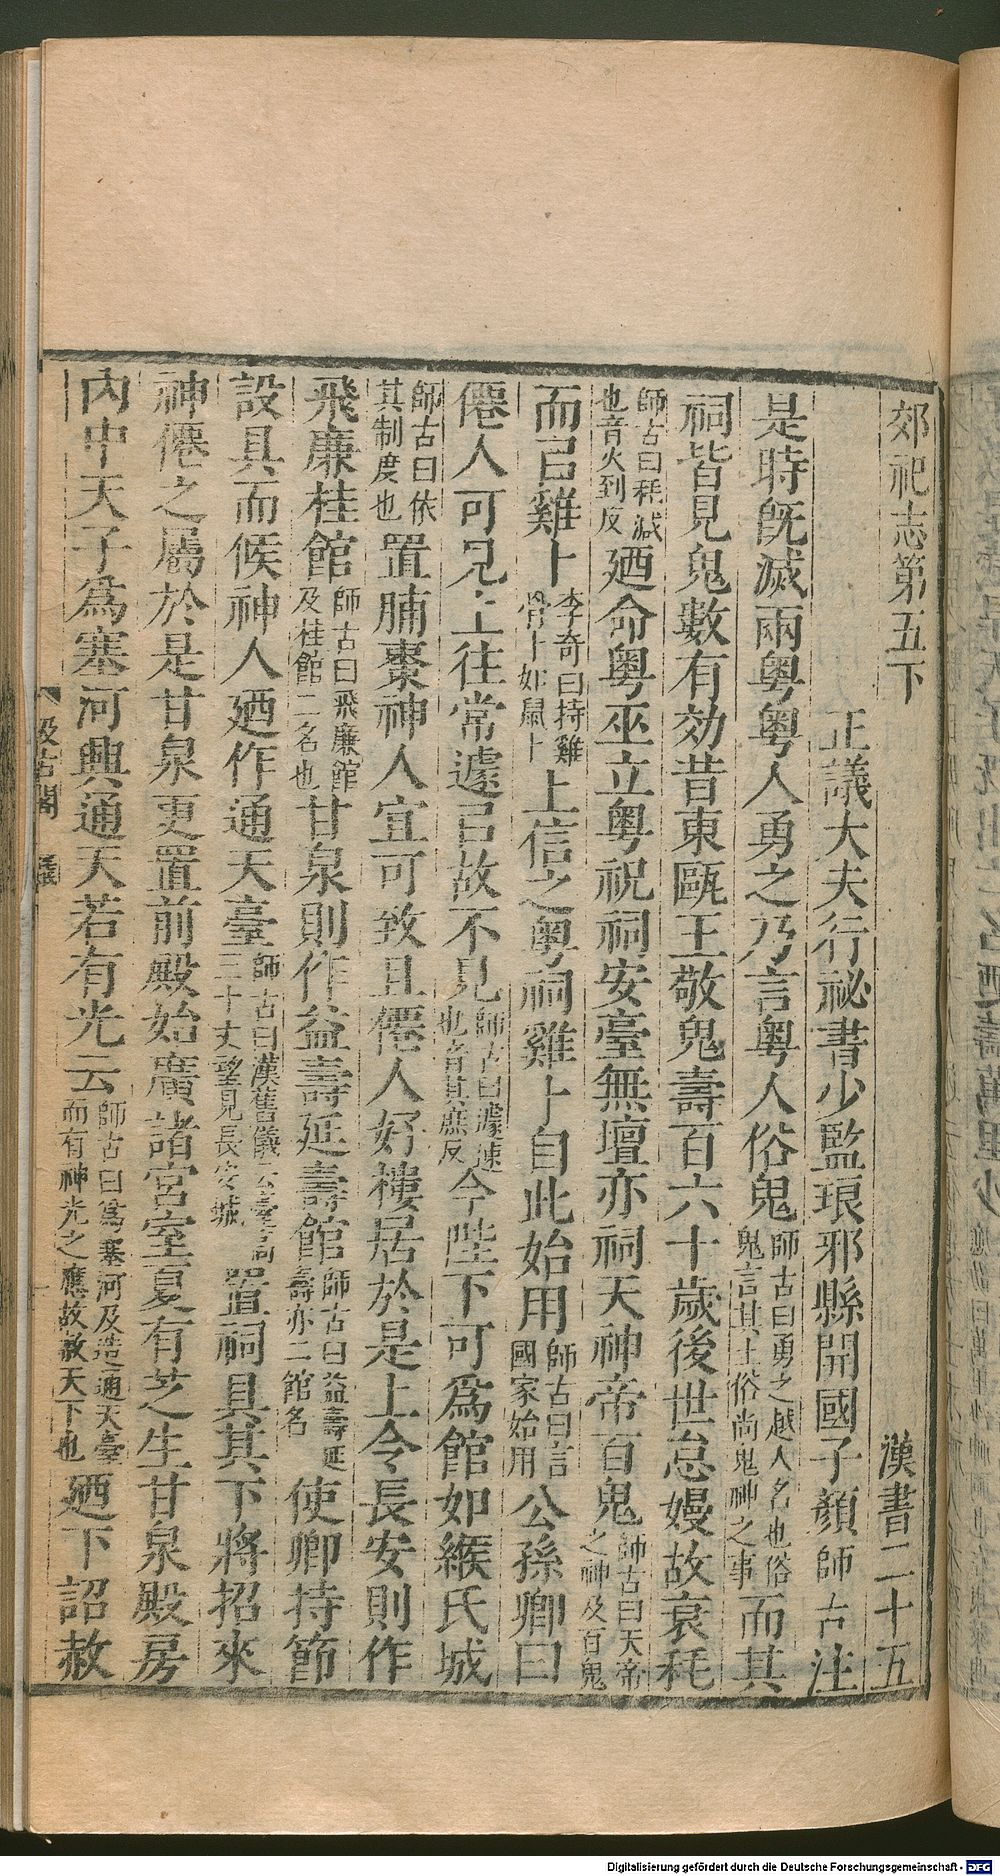 郊祀志第五下　漢書二十五
正議大夫行祕書少監琅邪縣開國子顏師古注
是時旣滅兩粤粤人勇之乃言粤人俗鬼師古曰勇之越人名也俗鬼言其土俗尚鬼神之事而其
祠皆見鬼數有効昔東甌王敬鬼壽百六十歲後世怠嫚故衰秏
師古曰秏減也音火到反廼命粤巫立粤祝祠安臺無壇亦祠天神帝百鬼師古曰天帝之神及百鬼
而㠯雞卜李奇曰持雞骨卜如鼠卜上信之粤祠雞卜自此始用師古曰言國家始用公孫卿曰
僊人可見上往常遽㠯故不見師古曰遽速也音其庶反今陛下可爲館如緱氏城
師古曰依其制度也置脯棗神人宜可致且僊人好樓居於是上令長安則作
飛廉桂館師古曰飛廉館及桂館二名也甘泉則作益壽延壽館師古曰益壽延壽亦二館名使卿持節
設具而候神人廼作通天臺師古曰漢舊儀云臺高三十丈望見長安城置祠具其下將招來
神僊之屬於是甘泉更置前殿始廣諸宮室夏有芝生甘泉殿房
內中天子爲塞河興通天若有光云師古曰爲塞河及造通天臺而有神光之應故赦天下也廼下詔赦
汲古閣
Digitalisierung gefördert durch die Deutsche Forschungsgemeinschaft - DFG